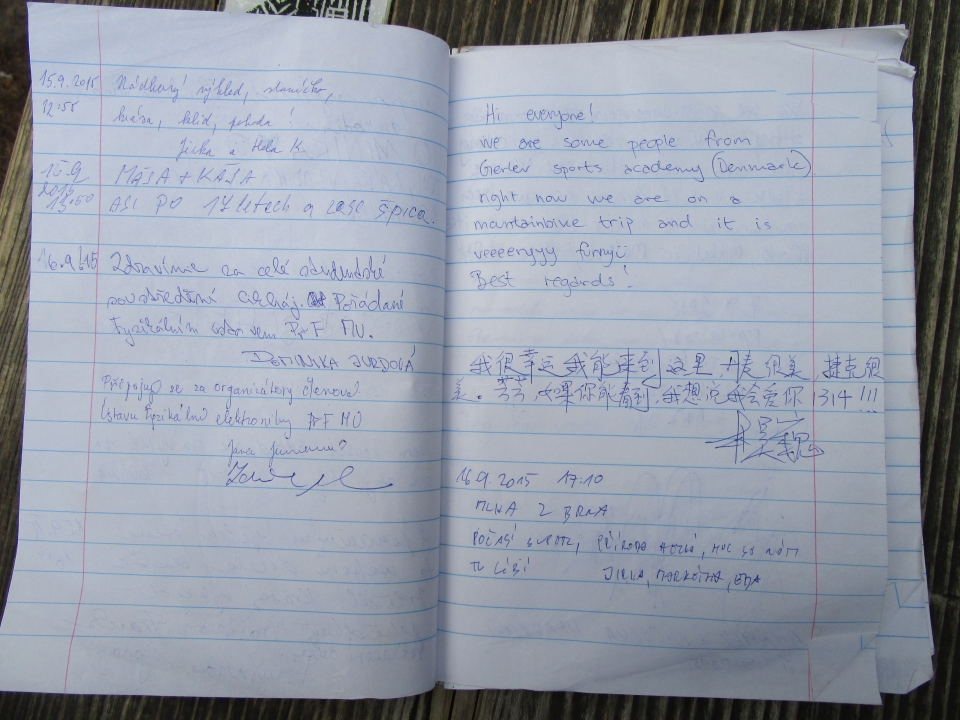 15.9.2015 Nádherný výhled, sluníčko,
12:55 krása, klid, pohoda!
Jirka a Hela K.
15.9 MÁSA + KÁSA
2015
13:50 ASI PO 17 letech a zase špica.
16.9.2015 Zdravíme za celé studentské
soustředění Pořádané
Fyzikálním ústavem PřF MU.
DOMINIKA
Připojuji se za organizátory členové
Ústavu Fyzikální elektroniky PřF MU
Jana
Hi everyone!
we are some people from
Gerlev sports academy (Denmark)
right now we are on a
mountainbike trip and it is
veeeenyyy funnyü
Best regards!
我很幸运 我能来到 这里 丹麦 很美 捷克很
美。芸芸 如果你能看到,我想说我会爱你 1314 !!!
16.9.2015 17:10
Z BRNA
POČASÍ SUPER, PŘÍRODA HEZKÁ, MOC SE NÁM
TU LÍBÍ , MARKÉTKA, EMA